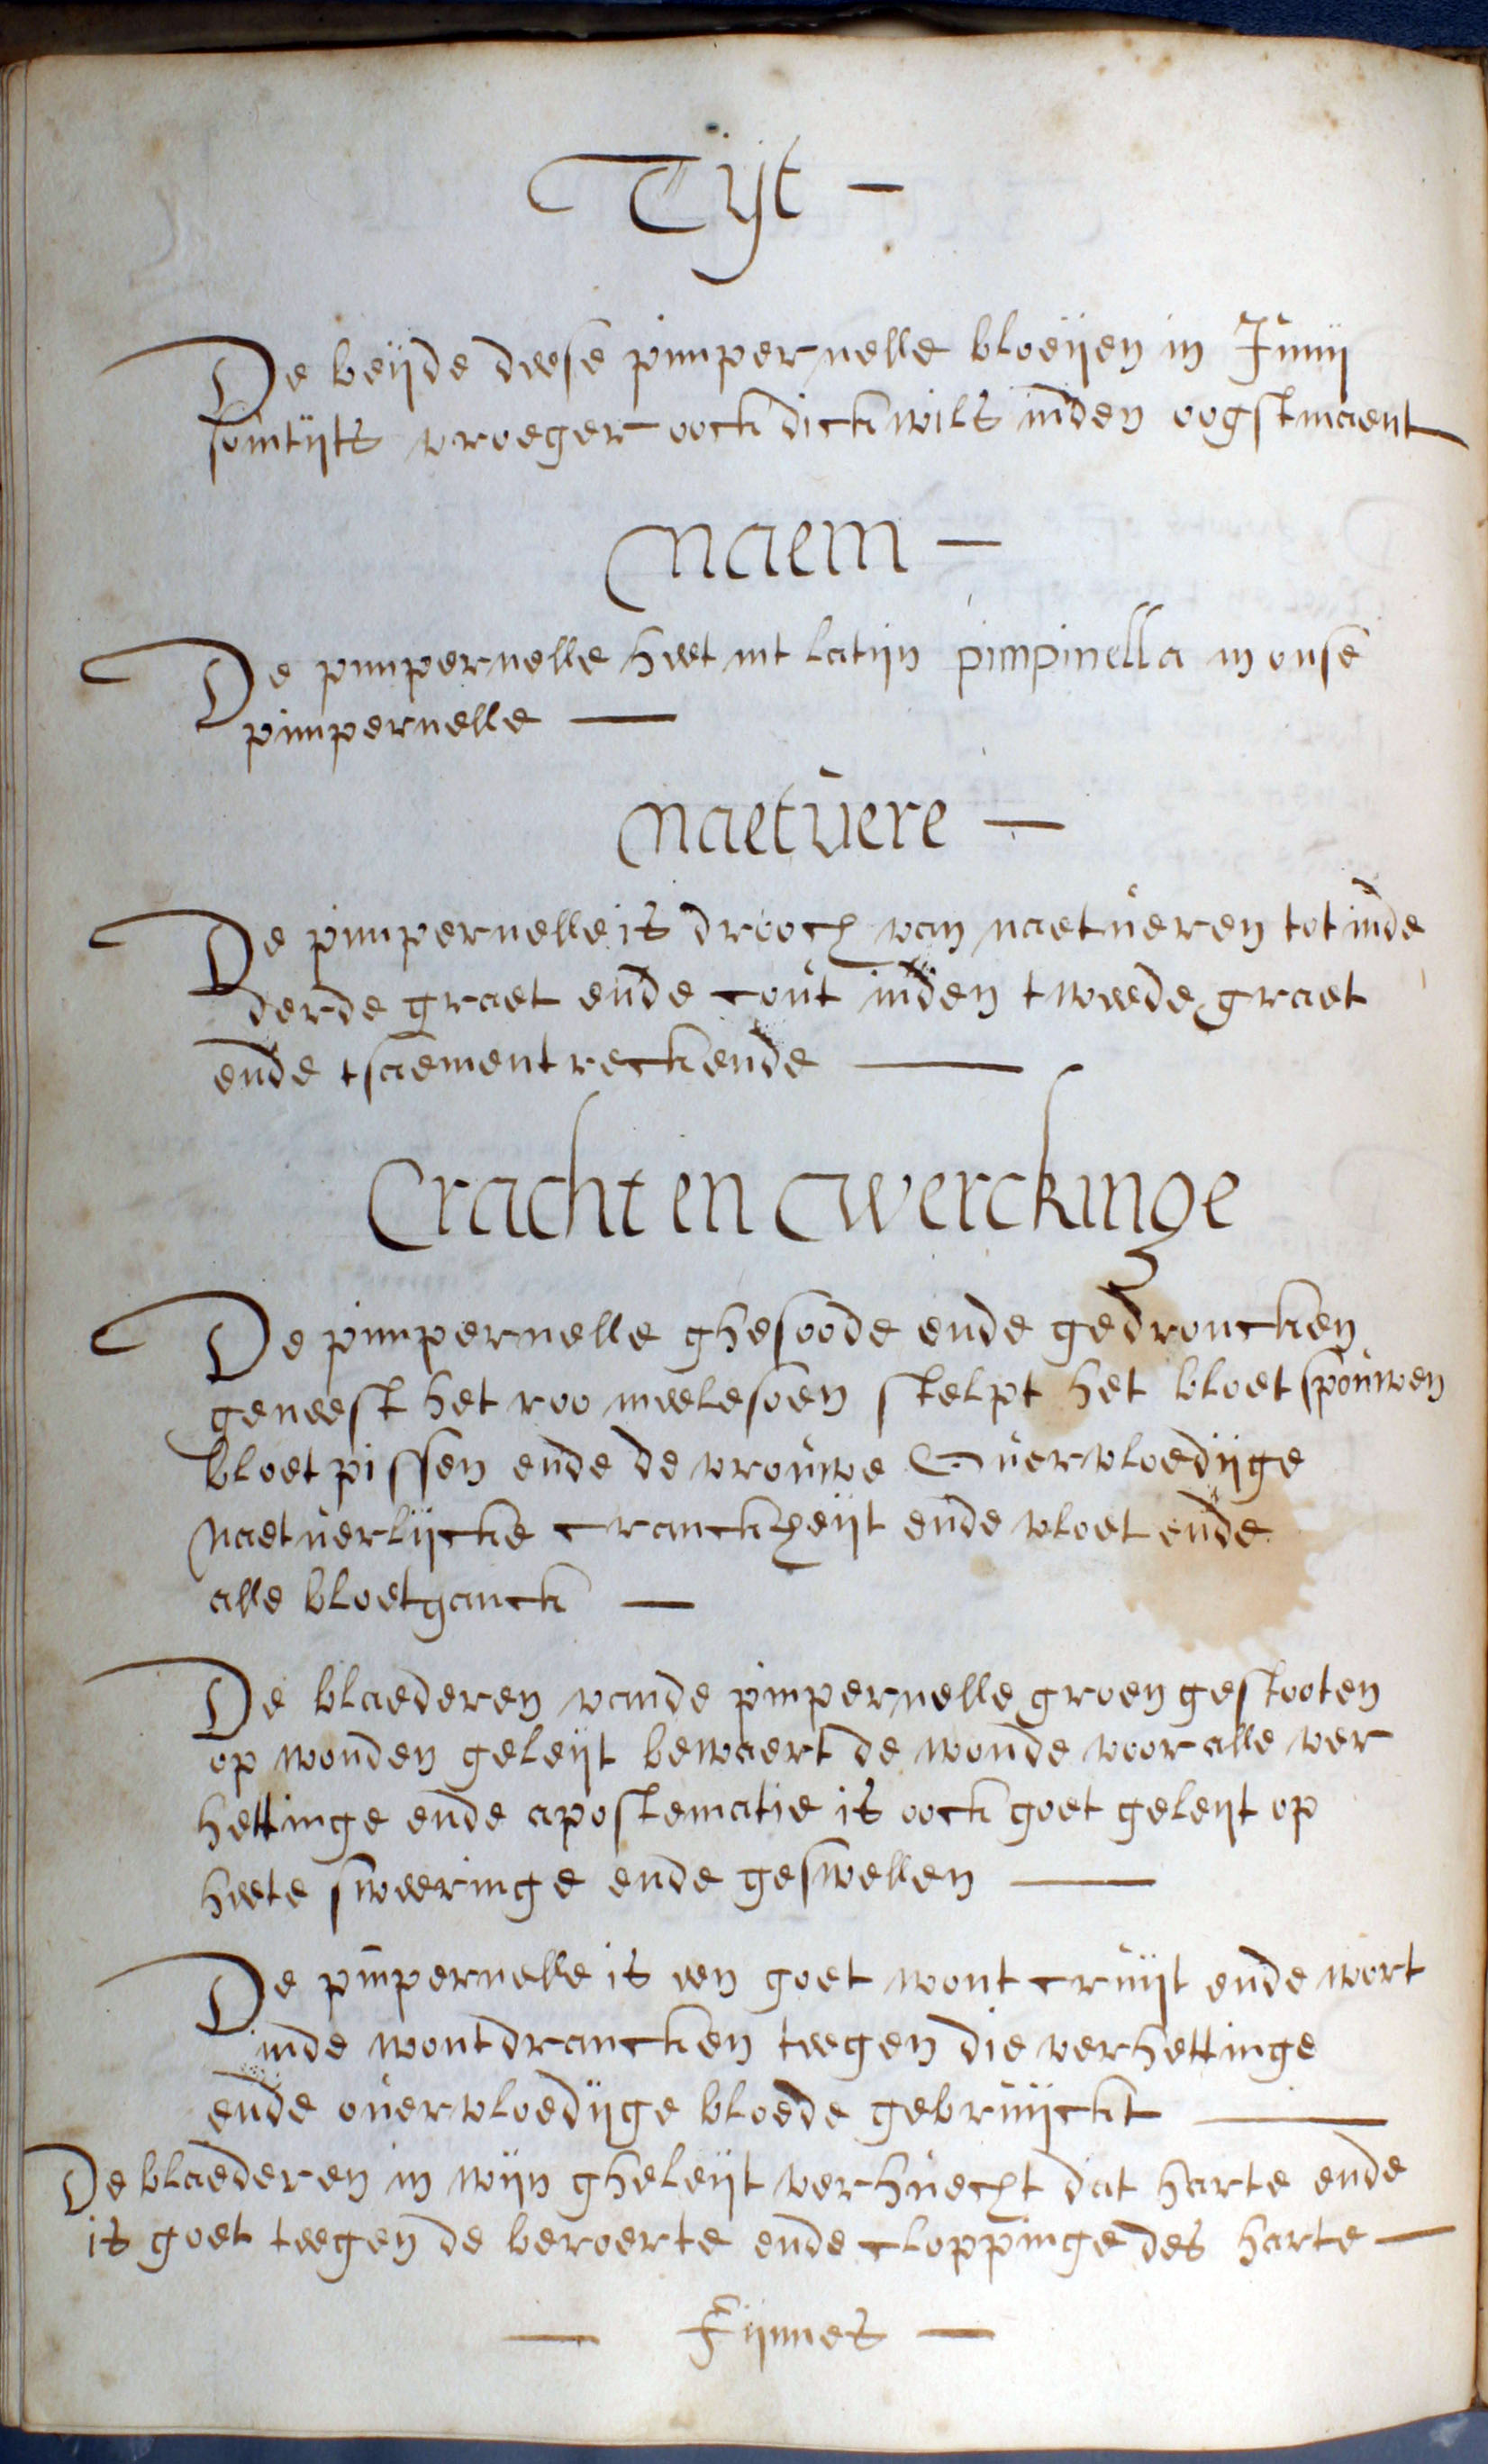 Tijt —
De beijde deese pimpernelle bloeijen in Junij
somtijts vroeger oock dickwils inden oogstmaent
Naem —
De pimpernelle heet int latijn pimpinella in onse
pimpernelle —
Naetuere —
De pimpernelle is drooch van naetueren tot inde
derde graet ende cout inden tweede graet
ende tsaementreckende —
Cracht en Werckinge
De pimpernelle ghesoode ende gedroncken
geneest het roo meelesoen stelpt het bloet spouwen
bloet pissen ende de vrouwe Overvloedijge
Naetuerlijcke cranckheijt ende vloet ende
alle bloetganck —
De blaederen vande pimpernelle groen gestooten
op wonden geleijt bewaert de wonde voor alle ver
hettinge ende apostematie is oock goet geleijt op
heete sweeringe ende geswellen —
De pimpernelle is een goet wont cruijt ende wort
inde wontdrancken teegen die verhettinge
ende overvloedijge bloede gebruijckt —
De blaederen in wijn gheleijt verhuecht dat harte ende
is goet teegen de beroerte ende cloppinge des harte —
— Fijnnes —